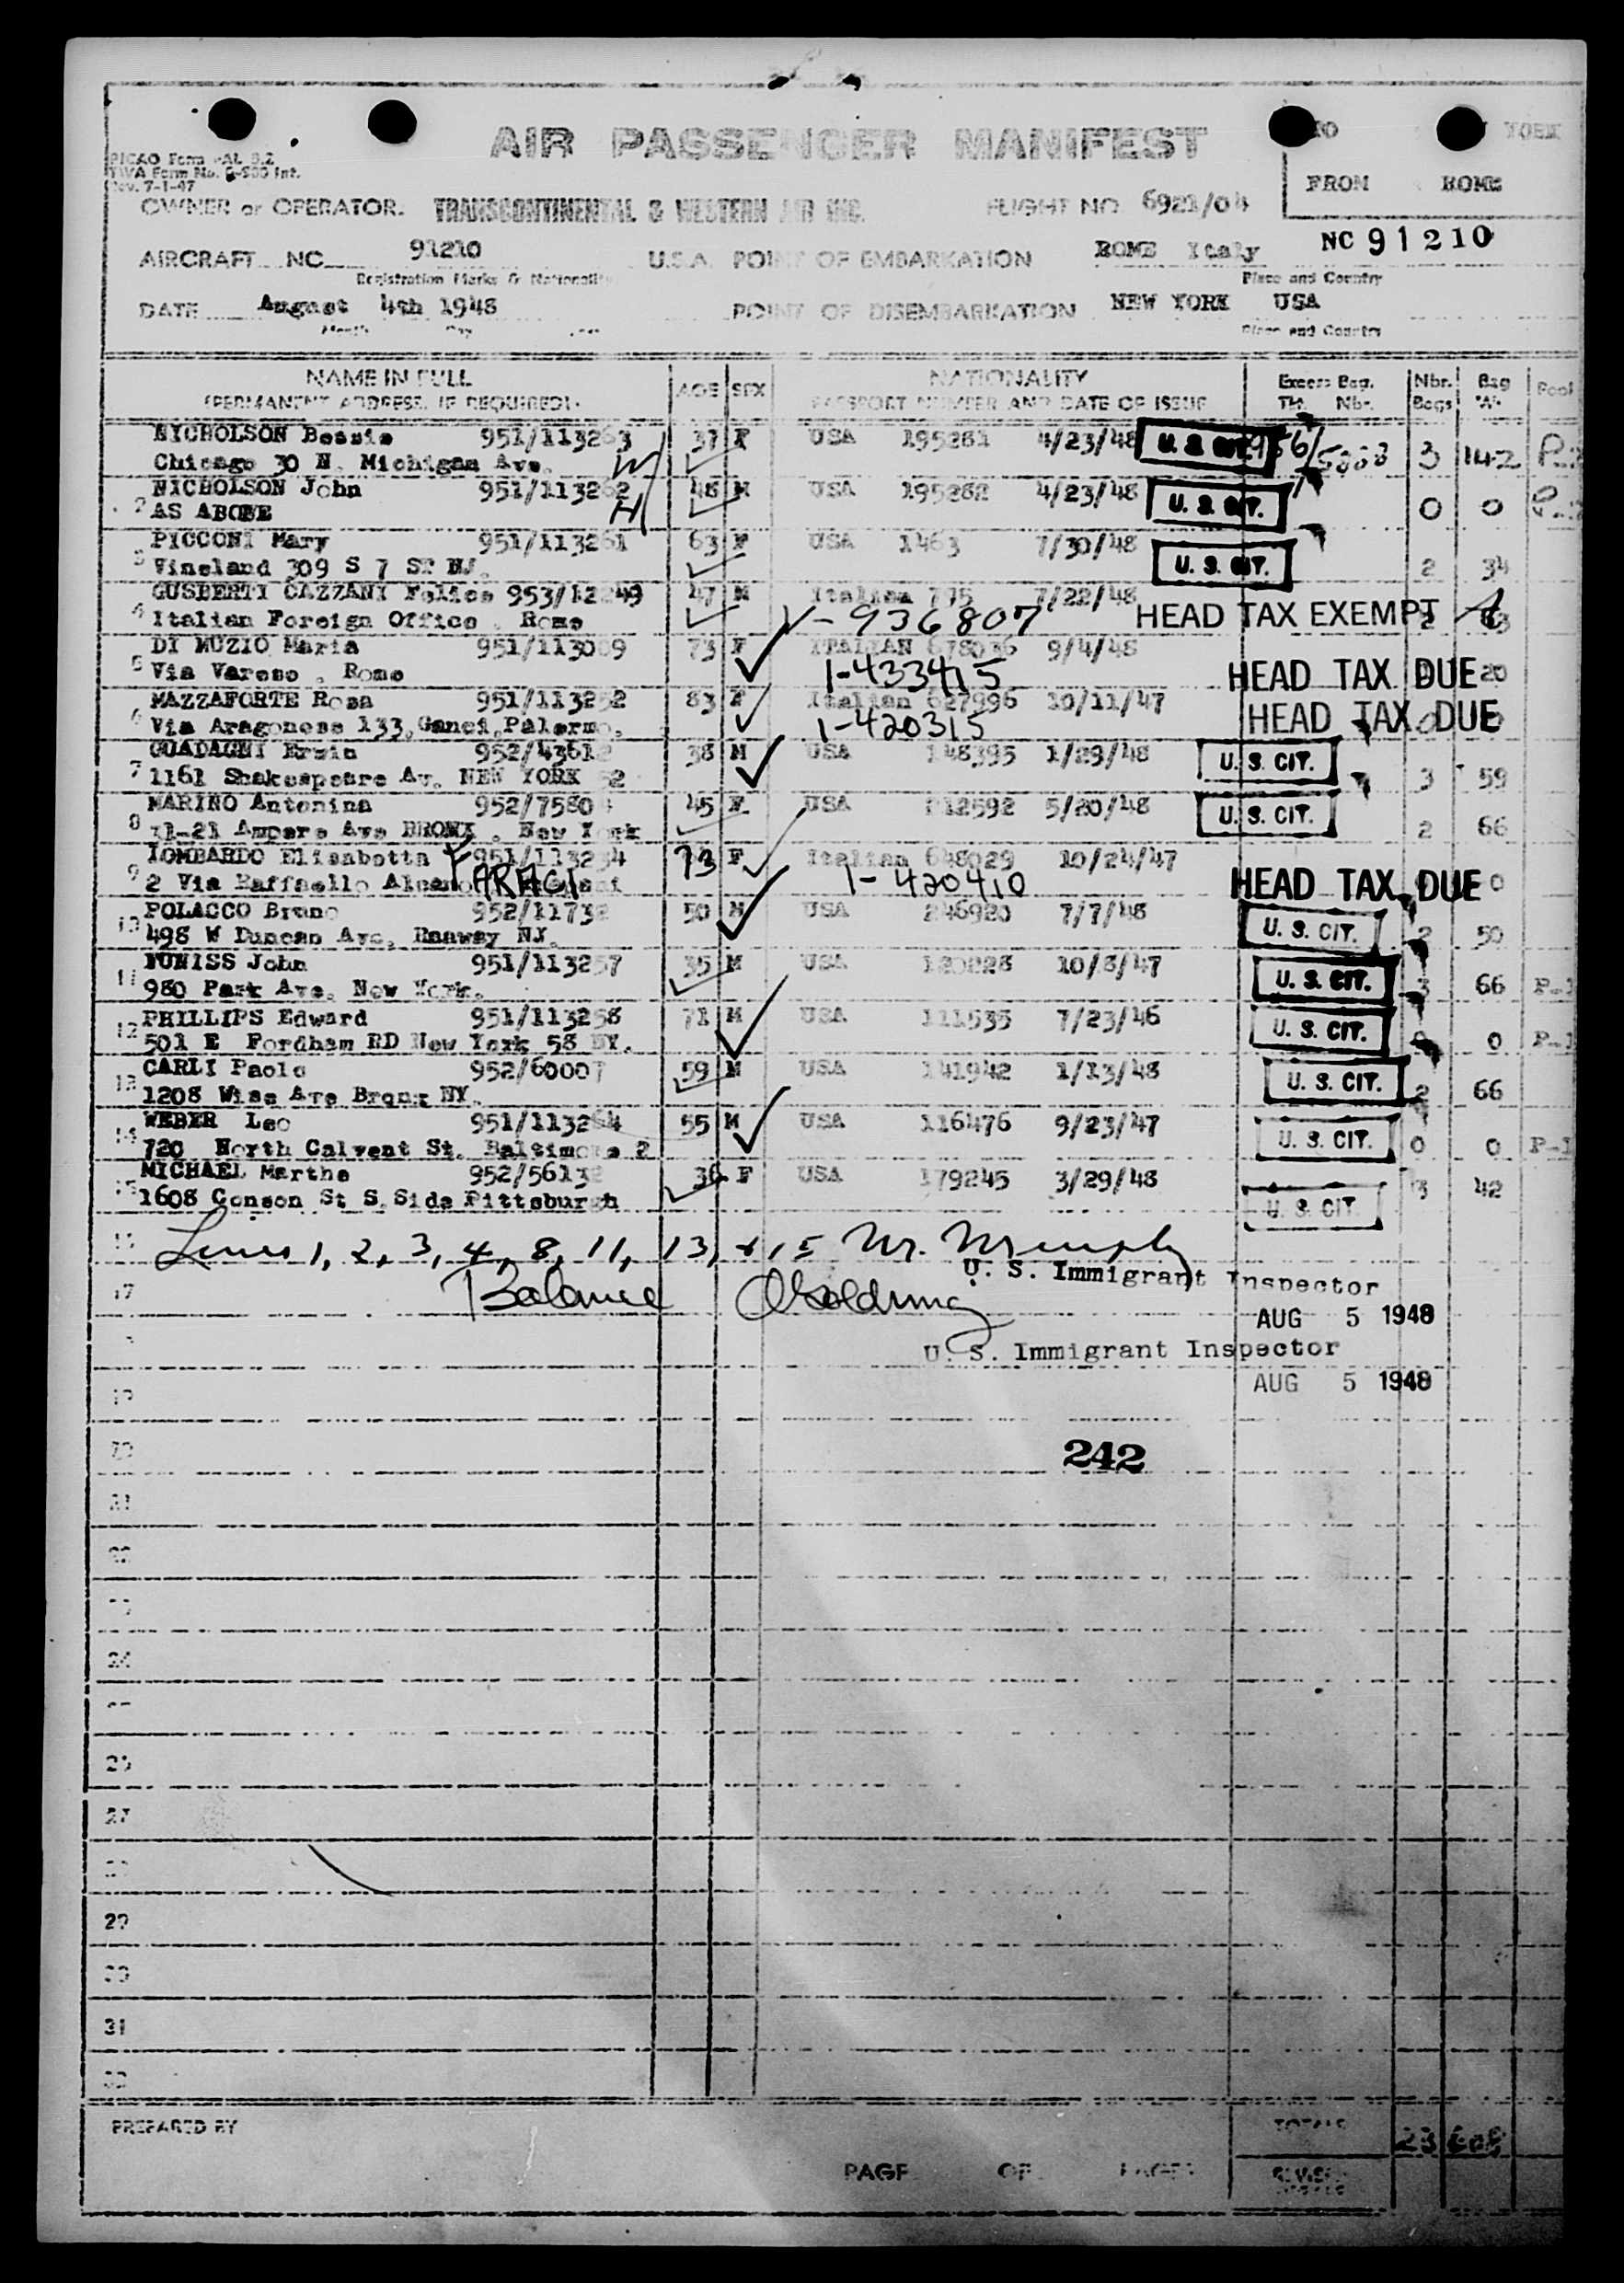 AIR PASSENGER MANIFEST
TO YORK
PICAO Form
TWA Form No. Int.
Rev. 7-1-47
FROM ROME
OWNER or OPERATOR. TRANSCONTINENTAL & WESTERN AIR INC. FLIGHT NO 6921/04
AIRCRAFT NC 91210 U.S.A. POINT OF EMBARKATION ROME Italy NC 91210
Registration Marks & Nationality Place and Country
DATE August 4th 1948 POINT OF DISEMBARKATION NEW YORK USA
Month Day Year Place and Country
NAME IN FULL AGE SEX NATIONALITY Excess Bag. Nbr. Bag Pool
(PERMANENT ADDRESS, IF REQUIRED) PASSPORT NUMBER AND DATE OF ISSUE Tkt. Nbr. Bags Wt.
NICHOLSON Bessie 951/113263 37 F USA 195281 4/23/48 U. S. CIT. 3 142
Chicago 30 N. Michigan Ave. W
NICHOLSON John 951/113262 48 M USA 195282 4/23/48 U. S. CIT. 0 0
2 AS ABOBE H
PICCONI Mary 951/113261 63 F USA 1463 7/30/48 U. S. CIT. 2 34
3 Vineland 309 S 7 ST NJ.
GUSBERTI CAZZANI Felice 953/12249 47 M Italian 775 7/22/48
4 Italian Foreign Office . Rome V-936807 HEAD TAX EXEMPT
DI MUZIO Maria 951/113009 73 F ITALIAN 678036 9/4/48
5 Via Varese . Rome 1-433415 HEAD TAX DUE 20
MAZZAFORTE Rosa 951/113252 83 F Italian 627996 10/11/47
6 Via Aragonese 133,Ganci,Palermo. 1-420315 HEAD TAX DUE
GUADAGNI Erzin 952/43612 38 M USA 148395 1/29/48 U. S. CIT. 3 59
7 1161 Shakespeare Av. NEW YORK 52
MARINO Antonina 952/7580 45 F USA 12592 5/20/48 U. S. CIT. 2 66
8 11-21 Ampere Ave BRONX . New York
LOMBARDO Elisabetta 951/113234 73 F Italian 648029 10/24/47
9 2 Via Raffaello Alcamo FARACI 1-420410 HEAD TAX DUE 0
POLACCO Bruno 952/11732 50 M USA 246920 7/7/48 U. S. CIT. 2 50
10 498 W Duncan Ave, Raaway NJ.
TUNISS John 951/113257 35 M USA 120228 10/8/47 U. S. CIT. 3 66 P-1
11 980 Park Ave. New York.
PHILLIPS Edward 951/113258 71 M USA 111535 7/23/46 U. S. CIT. 0 P-1
12 501 E Fordham RD New York 58 NY.
CARLI Paolo 952/60007 59 M USA 141942 1/13/48 U. S. CIT. 2 66
13 1208 Wise Ave Bronx NY.
WEBER Leo 951/113264 55 M USA 116476 9/23/47 U. S. CIT. 0 0 P-1
14 720 North Calvent St. Baltimore 2
MICHAEL Marthe 952/56132 36 F USA 179245 3/29/48 U. S. CIT. 3 42
15 1608 Conson St S.Side Pittsburgh
Lines 1, 2, 3, 4, 8, 11, 13, & 15 M. Murphy
U. S. Immigrant Inspector
17 Balance
AUG 5 1948
U. S. Immigrant Inspector
19 AUG 5 1948
20 242
21
22
24
26
27
29
30
31
32
PREPARED BY TOTALS 23 608
PAGE OF PAGES